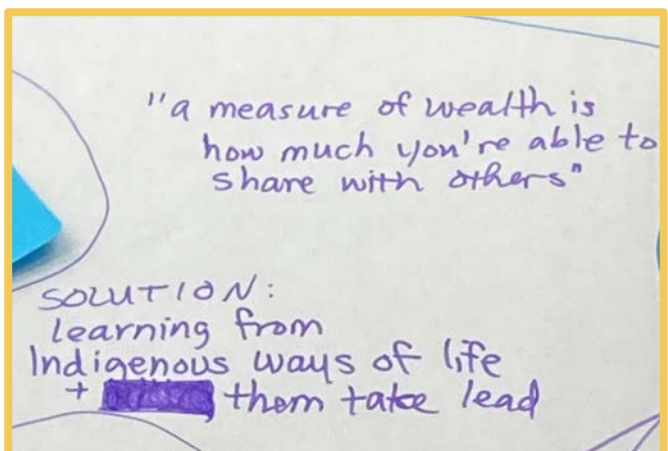 "a measure of wealth is
how much you're able to
share with others"
SOLUTION:
learning from
Indigenous ways of life
+ them take lead